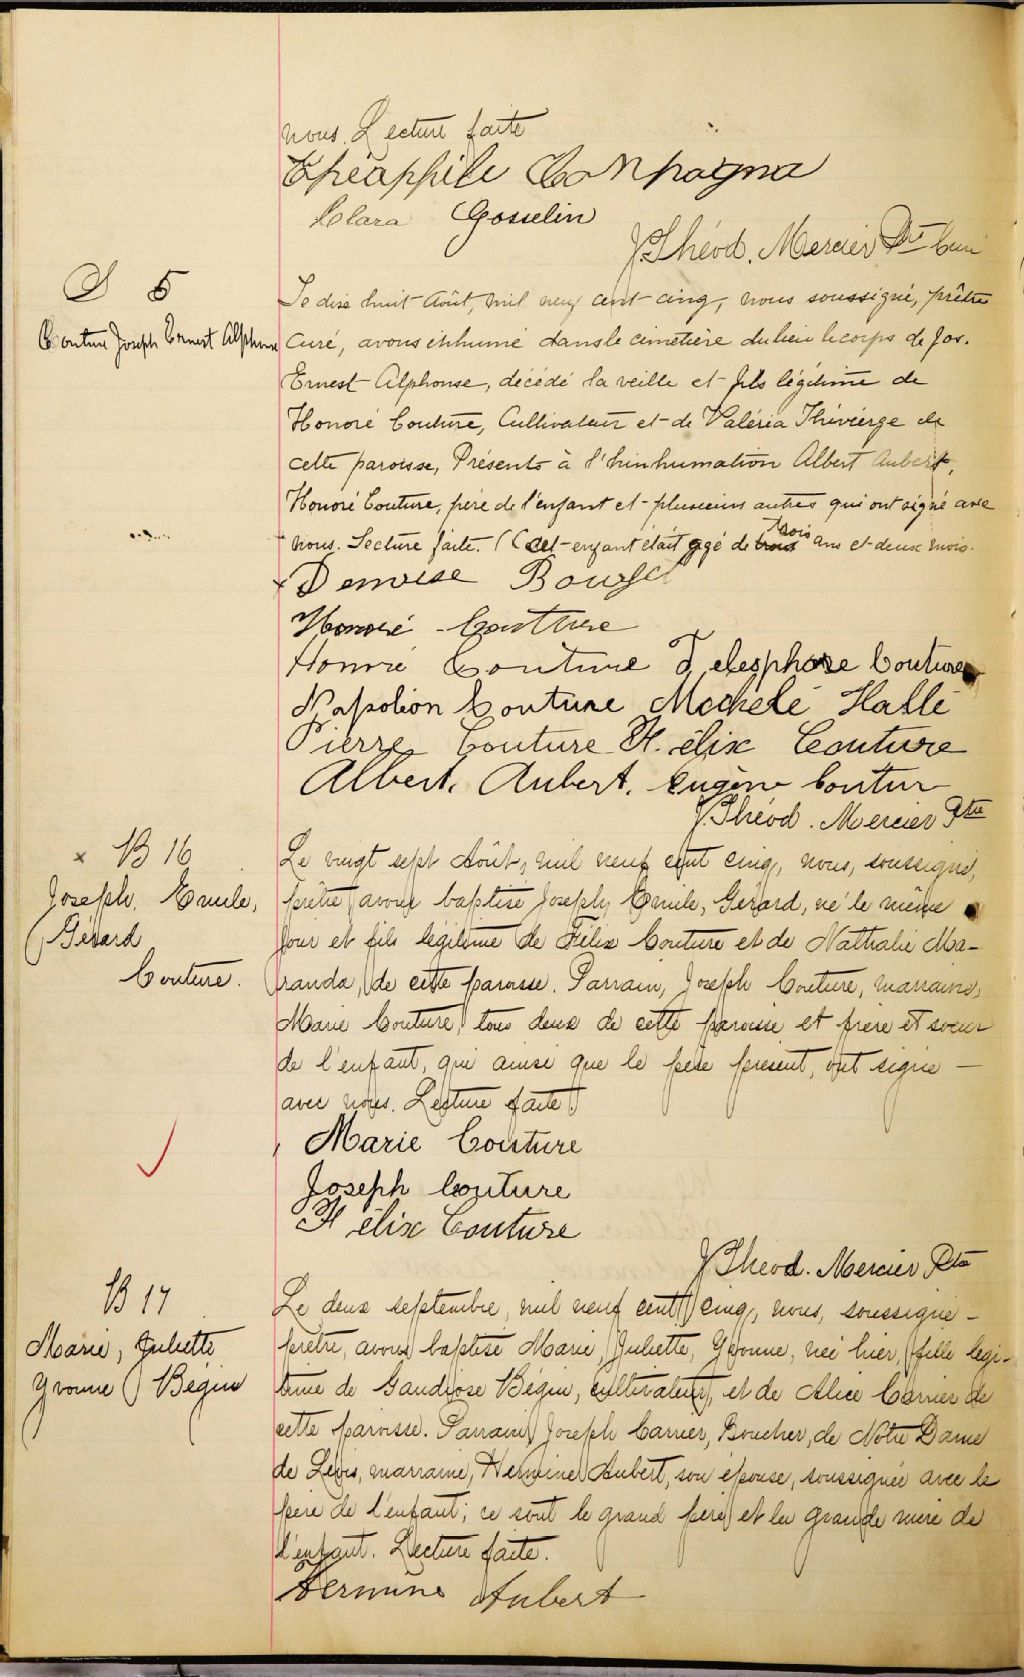 nous. Lecture faite
Théapphile Compagna
Clara Gosselin
J Théod. Mercier Ptre Curé
S 5
Couture Joseph Ernest Alphonse
Le dix huit Août, mil neuf cent cinq, nous soussigné, prêtre
Curé, avons inhumé dans le cimetière du lieu le corps de Jos.
Ernest Alphonse, décédé la veille et fils légitime de
Honoré Couture, Cultivateur et de Valéria Thivièrge de
cette paroisse, Présents à l'hinhumation Albert Aubert,
Honoré Couture, père de l'enfant et plusieurs autres qui ont signé avec
nous. Lecture faite. (Cet enfant était agé de trois ans et deux mois.
Honoré Couture
Honoré Couture Telesphore Couture
Napoléon Couture Michel Hallé
Pierre Couture Félix Couture
Albert. Aubert. Eugène Coutur
J. Théod. Mercier Ptre
x B 16
Joseph, Emile,
Gérard
Couture.
Le vingt sept Août, mil neuf cent cinq, nous, soussigné,
prêtre avons baptisé Joseph, Emile, Gérard, né le même
jour et fils légitime de Félix Couture et de Nathalie Ma-
randa, de cette paroisse. Parrain, Joseph Couture, marraine,
Marie Couture, tous deux de cette paroisse et frère et soeur
de l'enfant, qui ainsi que le père présent, ont signé —
avec nous. Lecture faite.
Marie Couture
Joseph Couture
Félix Couture
J Théod. Mercier Ptre
B 17
Marie, Juliette
Yvonne Bégin
Le deux septembre, mil neuf cent cinq, nous, soussigné -
prêtre, avons baptisé Marie, Juliette, Yvonne, née hier, fille legi-
time de Gaudiose Bégin, cultivateur, et de Alice Carrier de
cette paroisse. Parrain Joseph Carrier, Boucher, de Notre Dame
de Lévis, marraine, Hermine Aubert, son epouse, soussignée avec le
père de l'enfant; ce sont le grand père et la grande mère de
l'enfant. Lecture faite.
Hermine Aubert